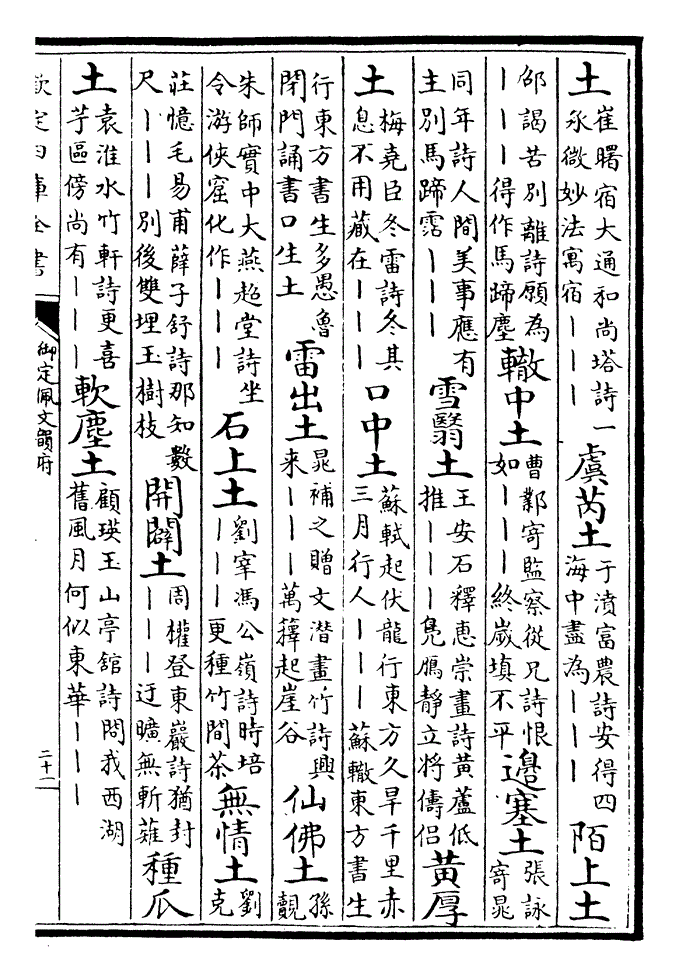 土崔曙宿大通和尚塔詩一承微妙法寓宿｜｜｜虞芮土于濆富農詩安得四海中盡為｜｜｜陌上土
邵謁苦別離詩願為｜｜｜得作馬蹄塵轍中土曹鄴寄監察從兄詩恨如｜｜｜終歲填不平邊塞土張詠寄晁
同年詩人間美事應有主別馬蹄霑｜｜｜雪翳土王安石釋惠崇畫詩黃蘆低推｜｜｜鳧鴈靜立將儔侶黃厚
土梅堯臣冬雷詩冬其息不用藏在｜｜｜口中土蘇軾起伏龍行東方久旱千里赤三月行人｜｜｜蘇轍東方書生
行東方書生多愚魯閉門誦書口生土雷出土晁補之贈文潛畫竹詩興來｜｜｜萬籜起崖谷仙佛土孫覿
朱師實中大燕超堂詩坐令游俠窟化作｜｜｜石上土劉宰馮公嶺詩時培｜｜｜更種竹間茶無情土劉克
莊憶毛易甫薛子舒詩那知數尺｜｜｜別後雙埋玉樹枝開闢土周權登東巖詩猶封｜｜｜迂曠無斬薙種瓜
土袁淮水竹軒詩更喜芋區傍尚有｜｜｜軟塵土顧瑛玉山亭舘詩問我西湖舊風月何似東華｜｜｜
欽定四庫全書
御定佩文韻府
二十一